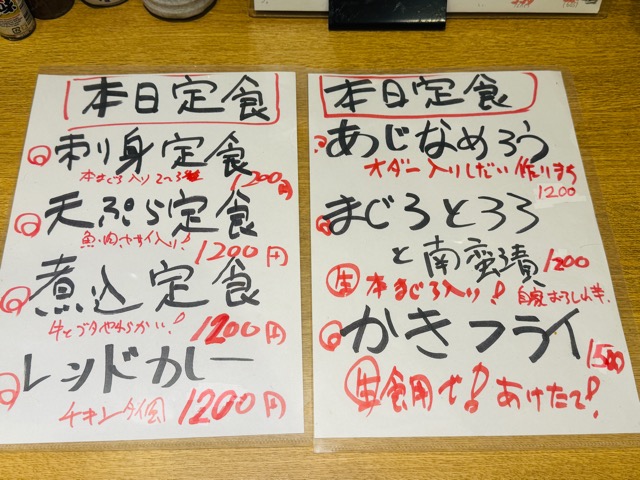 本日定食
刺身定食
本まぐろ入り 2〜3種 1200円
天ぷら定食
魚・肉・ヤサイ入り! 1200円
煮込定食
牛とブタやわらかい! 1200円
レッドカレー
チキン タイ風 1200円
本日定食
あじなめろう
オダー入りしだい 作りまち
1200
まぐろとろろ
と南蛮漬 1200
生 本まぐろ入り! 自家おろし芋
かきフライ
1500
生食用で! あけたて!